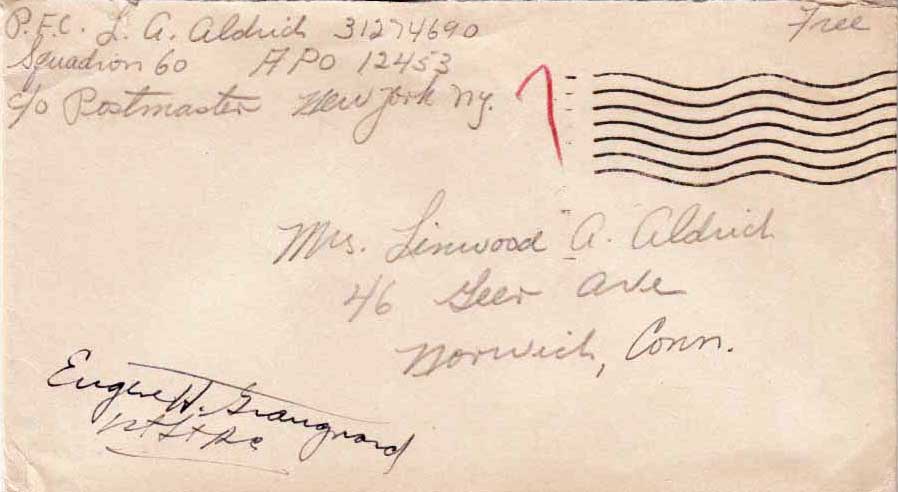 P.F.C. L. A. Aldrich 31274690
Free
Squadron 60 APO 12453
c/o Postmaster New York N.Y.
Mrs. Linwood A. Aldrich
46 Geer Ave
Norwich, Conn.
Eugene H.
1st Lt